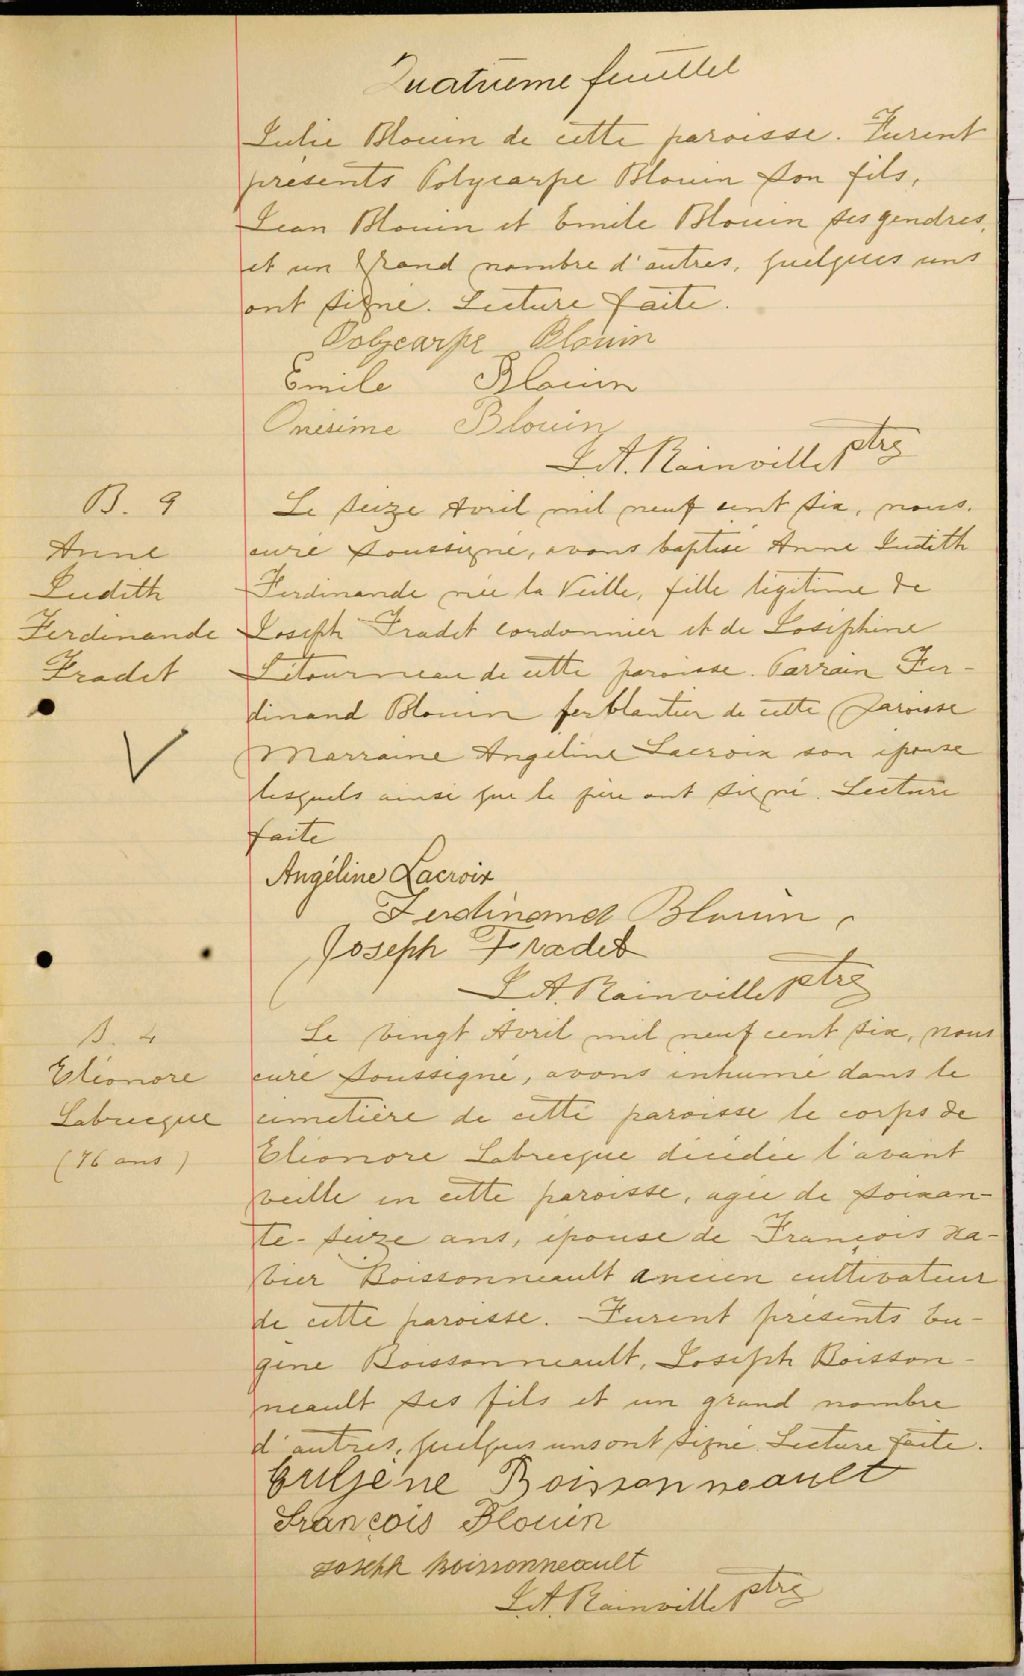 Quatrième feuillet
Julie Blouin de cette paroisse. Furent
présents Polycarpe Blouin son fils,
Jean Blouin et Emile Blouin ses gendres,
et un grand nombre d'autres, quelques uns
ont signé. Lecture faite.
Polycarpe Blouin
Emile Blouin
Onésime Blouin
J.A. Rainville ptre
B. 9
Anne
Judith
Ferdinande
Fradet
Le seize Avril mil neuf cent six, nous,
curé soussigné, avons baptisé Anne Judith
Ferdinande née la veille, fille légitime de
Joseph Fradet cordonnier et de Joséphine
Létourneau de cette paroisse. Parrain Fer-
dinand Blouin ferblantier de cette paroisse
Marraine Angéline Lacroix son épouse
lesquels ainsi que le père ont signé. Lecture
faite
Angéline Lacroix
Ferdinand Blouin,
Joseph Fradet
J.A. Rainville ptre
S. 4
Eléonore
Labrecque
(76 ans)
Le vingt Avril mil neuf cent six, nous
curé soussigné, avons inhumé dans le
cimetière de cette paroisse le corps de
Eléonore Labrecque décédée l'avant
veille en cette paroisse, agée de soixan-
te-seize ans, épouse de François Xa-
vier Boissonneault ancien cultivateur
de cette paroisse. Furent présents Eu-
gène Boissonneault, Joseph Boisson-
neault ses fils et un grand nombre
d'autres, quelques uns ont signé. Lecture faite.
Eugène Boissonneault
François Blouin
Joseph Boissonneault
J.A. Rainville ptre